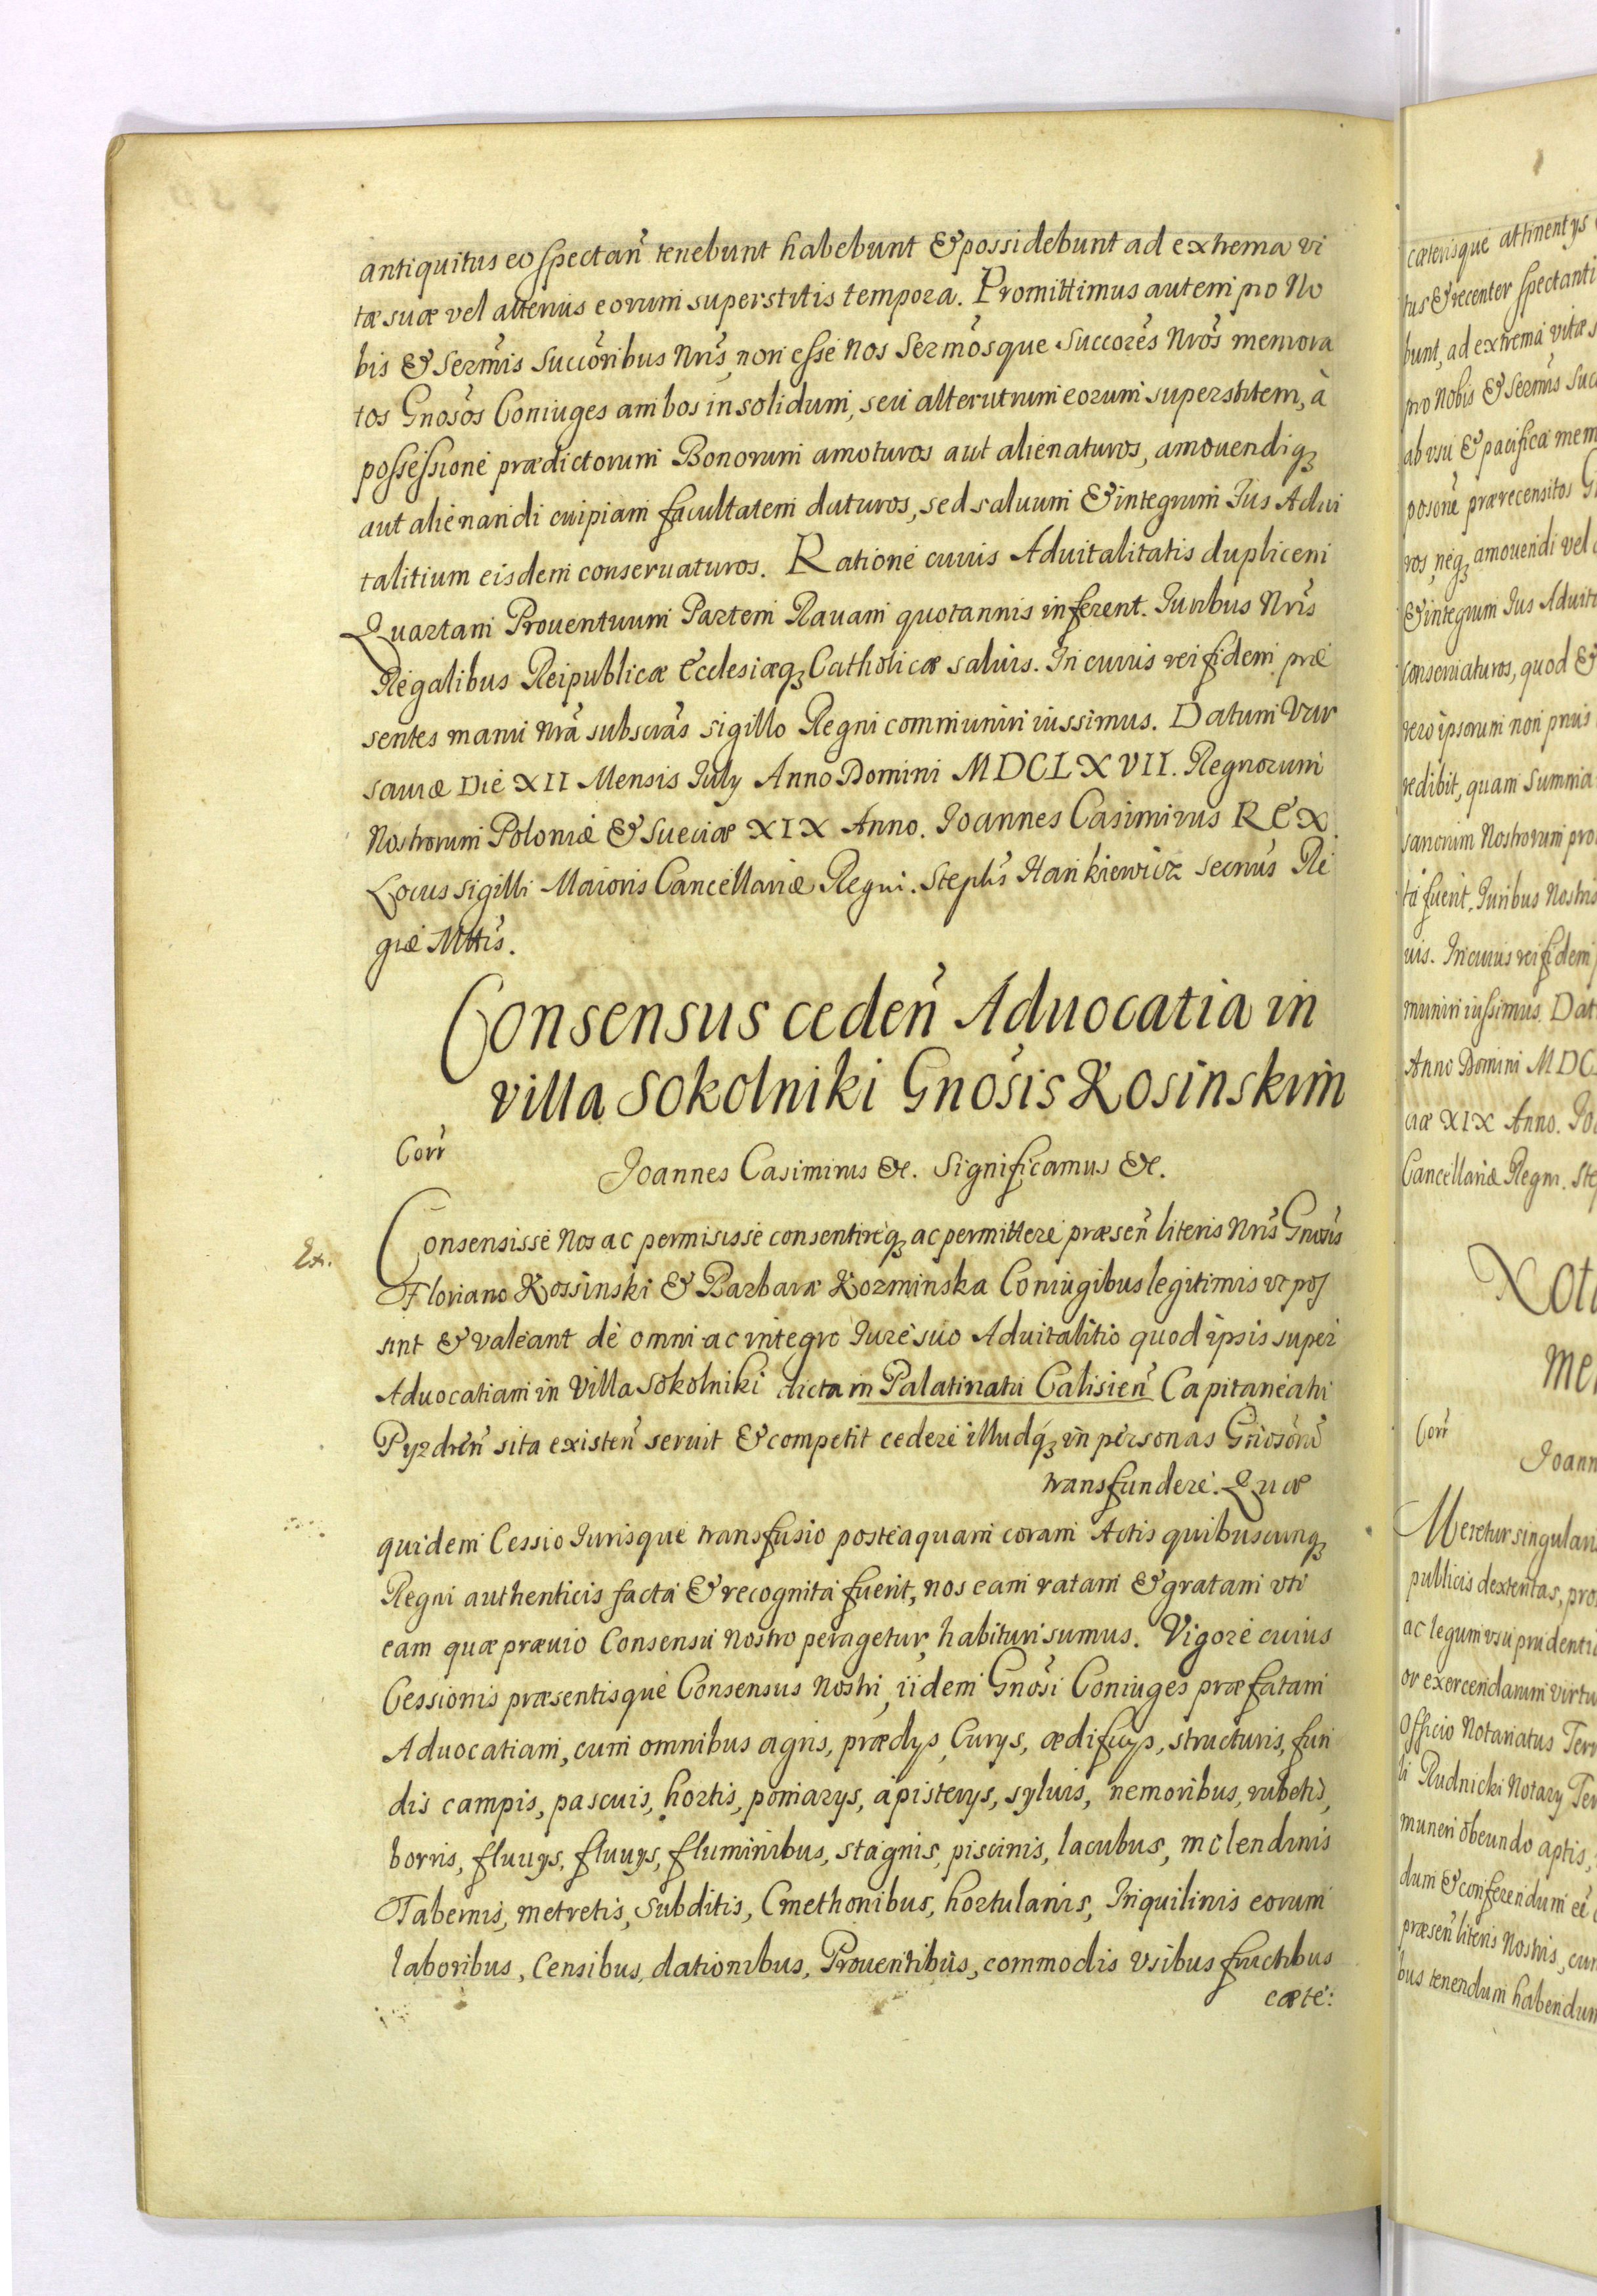 antiquitus eo spectañ tenebunt habebunt & possidebunt ad extrema vi
tæ suæ vel alterius eorum superstitis tempora. Promittimus autem pro No
bis & Sermis Succoribus Nris, non esse Nos Sermosque Succores Nros memora
tos Gnosos Coniuges ambos in solidum, seu alterutrum eorum superstitem, à
possessione prædictorum Bonorum amoturos aut alienaturos, amouendiq3
aut alienandi cuipiam facultatem daturos, sed saluum & integrum Ius Adui
talitium eisdem conseruaturos. Ratione cuius Aduitalitatis duplicem
Quartam Prouentuum Partem Rauam quotannis inferent. Iuribus Nris
Regalibus Reipublicæ Ecclesiæq3 Catholicæ saluis. In cuius rei fidem præ
sentes manu Nra subscras sigillo Regni communiri iussimus. Datum Var
sauiæ Die XII Mensis July Anno Domini MDCLXVII. Regnorum
Nostrorum Poloniæ & Sueciæ XIX Anno. Joannes Casimirus REX
Locus sigilli Maioris Cancellariæ Regni. Stephs Hankiewicz Secrius Re
giæ Mttis.
Consensus cedeñ Aduocatia in
villa Sokolniki Gnosis Kosinskim
Corr
Joannes Casimirus &c. Significamus &c.
Ex.
Consensisse Nos ac permisisse consentireq3 ac permittere præseñ literis Nris Gnosis
Floriano Kossinski & Barbaræ Kozminska Coniugibus legitimis vt pos
sint & valeant de omni ac integro Iure suo Aduitalitio quod ipsis super
Aduocatiam in Villa Sokolniki dicta in Palatinatu Calisieñ Capitaneatu
Pyzdreñ sita existeñ seruit & competit cedere illudq3 in personas Gnosorũ
transfundere. Quæ
quidem Cessio Iurisque transfusio posteaquam coram Actis quibuscunq3
Regni authenticis facta & recognita fuerit, nos eam ratam & gratam vti
eam quæ præuio Consensu Nostro peragetur, habituri sumus. Vigore cuius
Cessionis præsentisque Consensus Nostri, iidem Gnosi Coniuges præfatam
Aduocatiam, cum omnibus agris, prædys, Curys, ædificys, structuris, fun
dis campis, pascuis, hortis, pomarys, apisterys, syluis, nemoribus, rubetis,
borris, fluuys, fluuys, fluminibus, stagnis, piscinis, lacubus, molendinis
Tabernis, metretis, Subditis, Cmethonibus, hortulanis, Inquilinis eorum
laboribus, Censibus, dationibus, Prouentibus, commodis Vsibus fructibus
cæte:
cæterisque attinentys
tus & recenter spectanti
bunt, ad extrema vitæ s
pro Nobis & Sermis Suc
ab vsu & pacifica mem
posone prærecensitos G
ros, neq3 amouendi vel
& integrum Ius Aduit
conseruaturos, quod &
vero ipsorum non prius
redibit, quam Summa
sanorum Nostrorum pro
ta fuerit. Iuribus Nostris
uis. In cuius rei fidem
muniri iussimus. Dat
Anno Domini MDC
ciæ XIX Anno. Jo
Cancellariæ Regni. Ste
Nota
Me
Corr
Joann
Meretur singularis
publicis dexteritas, pro
ac legum vsu prudentia
or exercendarum virtu
Officio Notariatus Terr
li Rudnicki Notary Ter
muneri obeundo aptis,
dum & conferendum ei
præseñ literis Nostris, cum
bus tenendum habendum